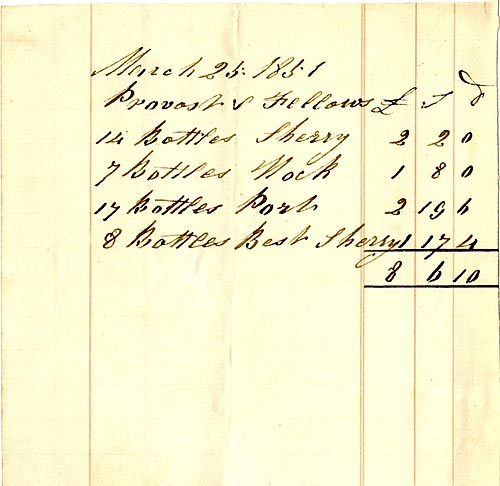 March 25. 1851
Provost & Fellows £ S d
14 Bottles Sherry 2 2 0
7 Bottles Hock 1 8 0
17 Bottles Port 2 19 6
8 Bottles Best Sherry 1 17 4
8 6 10